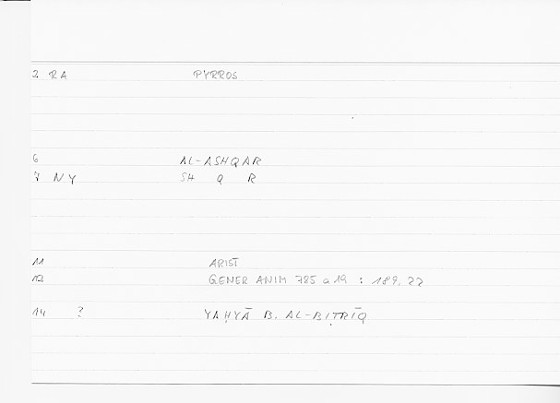 2 RA PYRROS
6 AL-ASHQAR
7 NY SH Q R
11 ARIST
12 GENER ANIM 785 a 19 : 189, 22
14 ? YAḤYĀ B. AL-BIṬRĪQ